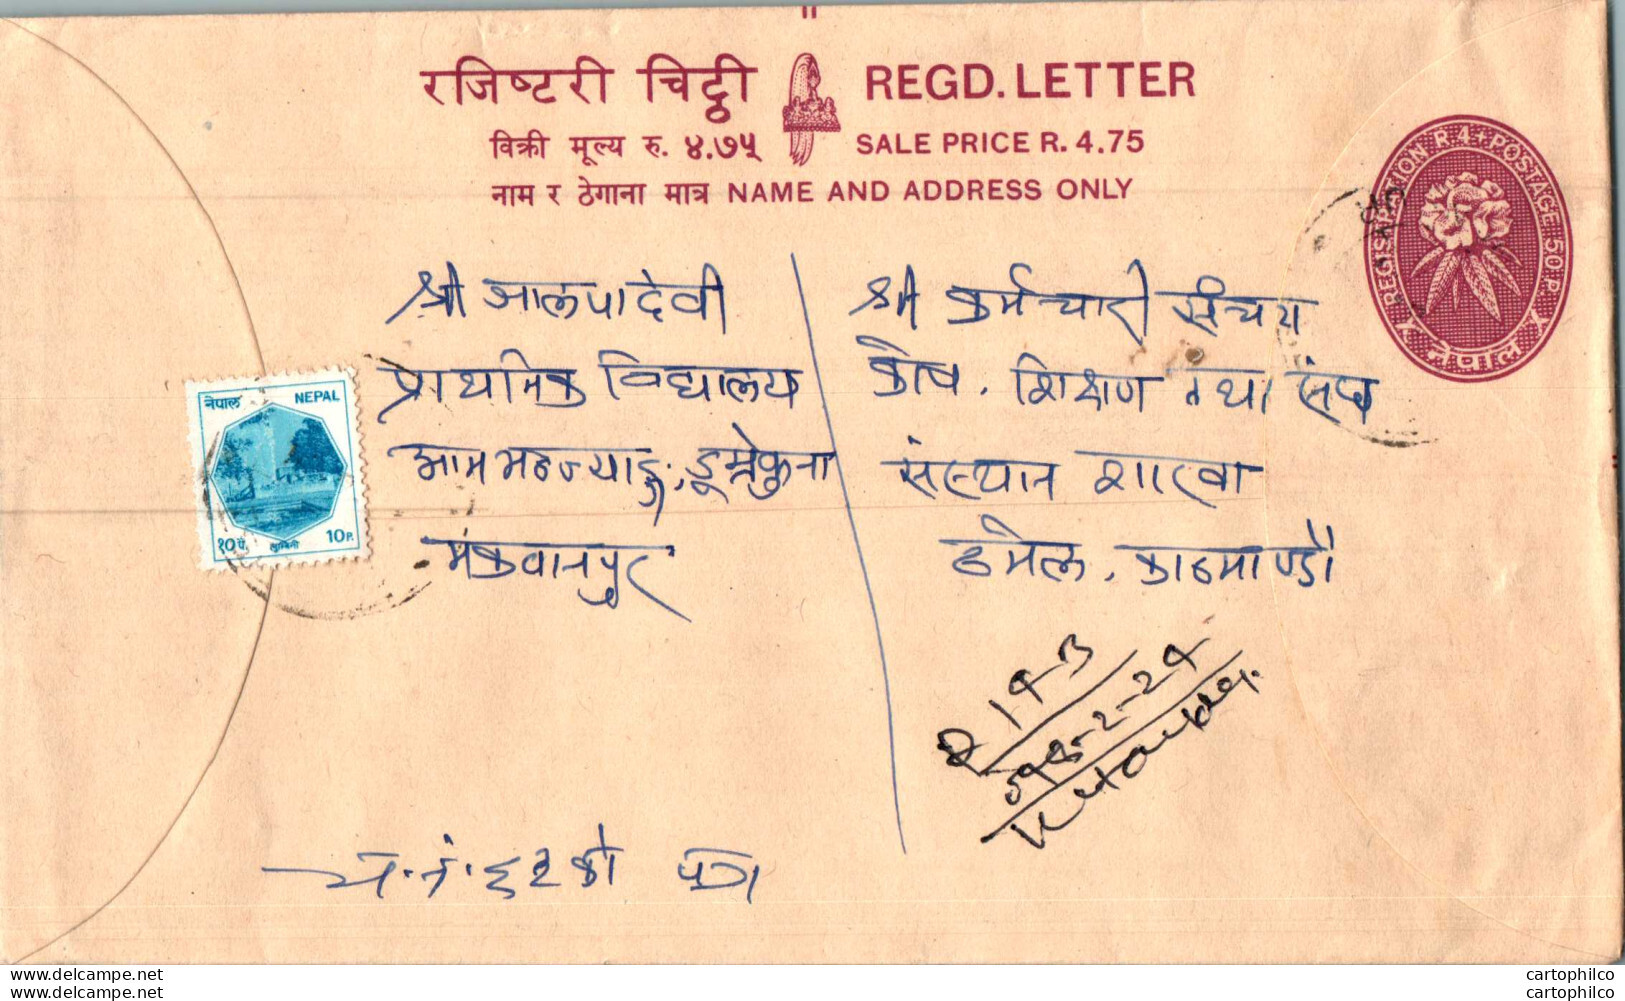 रजिष्टरी चिठ्ठी REGD. LETTER
विक्री मूल्य रु. ४.७५ SALE PRICE R. 4.75
नाम र ठेगाना मात्र NAME AND ADDRESS ONLY
REGISTRATION R. 4 + POSTAGE 50 P.
नेपाल
नेपाल NEPAL
१० पै. लुम्बिनी 10 P.
श्री जालपादेवी
प्राथमिक विद्यालय
आमभञ्ज्याङ्ग,
मकवानपुर
श्री कर्मचारी संचय
कोष. शिक्षण तथा संघ
संस्थान शाखा
ठमेल. काठमाण्डौ
R 193
च.नं. ६२ को पत्र
delcampe.net
delcampe.net
cartophilco
cartophilco